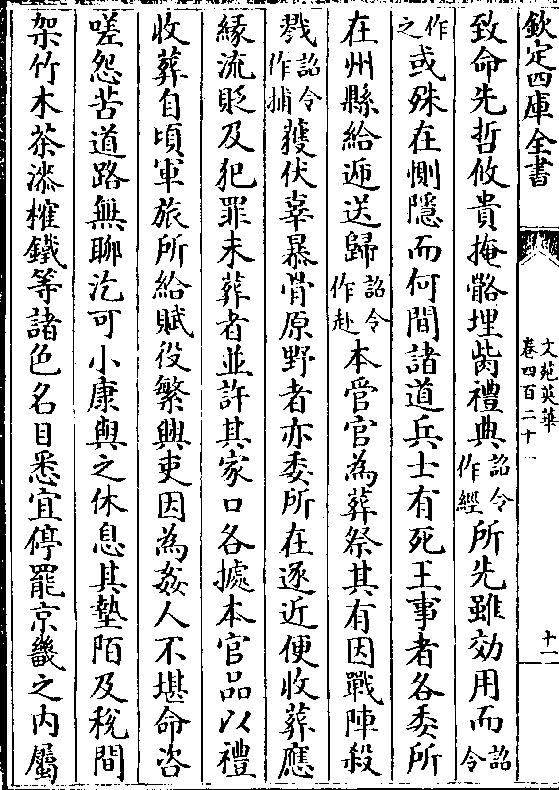 欽定四庫全書
文苑英華
卷四百二十一
十一
致命先哲攸貴掩骼埋胔禮典詔令作經所先雖効用而詔令
作之或殊在惻隱而何間諸道兵士有死王事者各委所
在州縣給遞送歸詔令作赴本管官為葬祭其有因戰陣殺
戮詔令作捕獲伏辜暴骨原野者亦委所在逐近便收葬應
緣流貶及犯罪未葬者並許其家口各據本官品以禮
收葬自頃軍旅所給賦役繁興吏因為姦人不堪命咨
嗟怨苦道路無聊汔可小康與之休息其墊陌及稅間
架竹木茶漆榷鐵等諸色名目悉宜停罷京畿之内屬